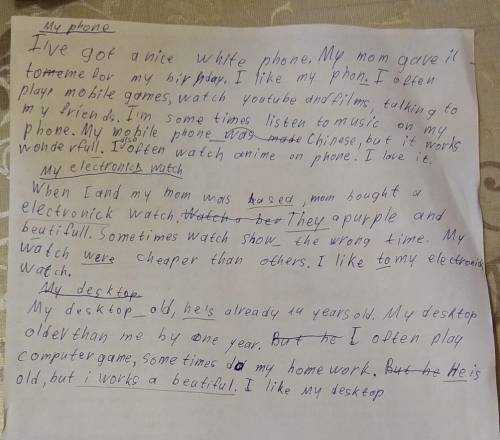 My phone
I've got a nice white phone. My mom gave it
to me for my birhday. I like my phon. I often
plays mobile games, watch youtube and films, talking to
my friends. I'm some times listen to music on my
phone. My mobile phone was made Chinese, but it works
wonderfull. I also often watch anime on phone. I love it.
My electronick watch
When I and my mom was based, mom bought a
electronick watch. Watch a ber They a purple and
beutifull. Sometimes watch show the wrong time. My
watch were cheaper than others. I like to my electronick
watch.
My desktop
My desktop old, he's already 14 years old. My desktop
older than me by one year. But he I often play
computer game, some times do my home work. But he He is
old, but i works a beutiful. I like My desktop